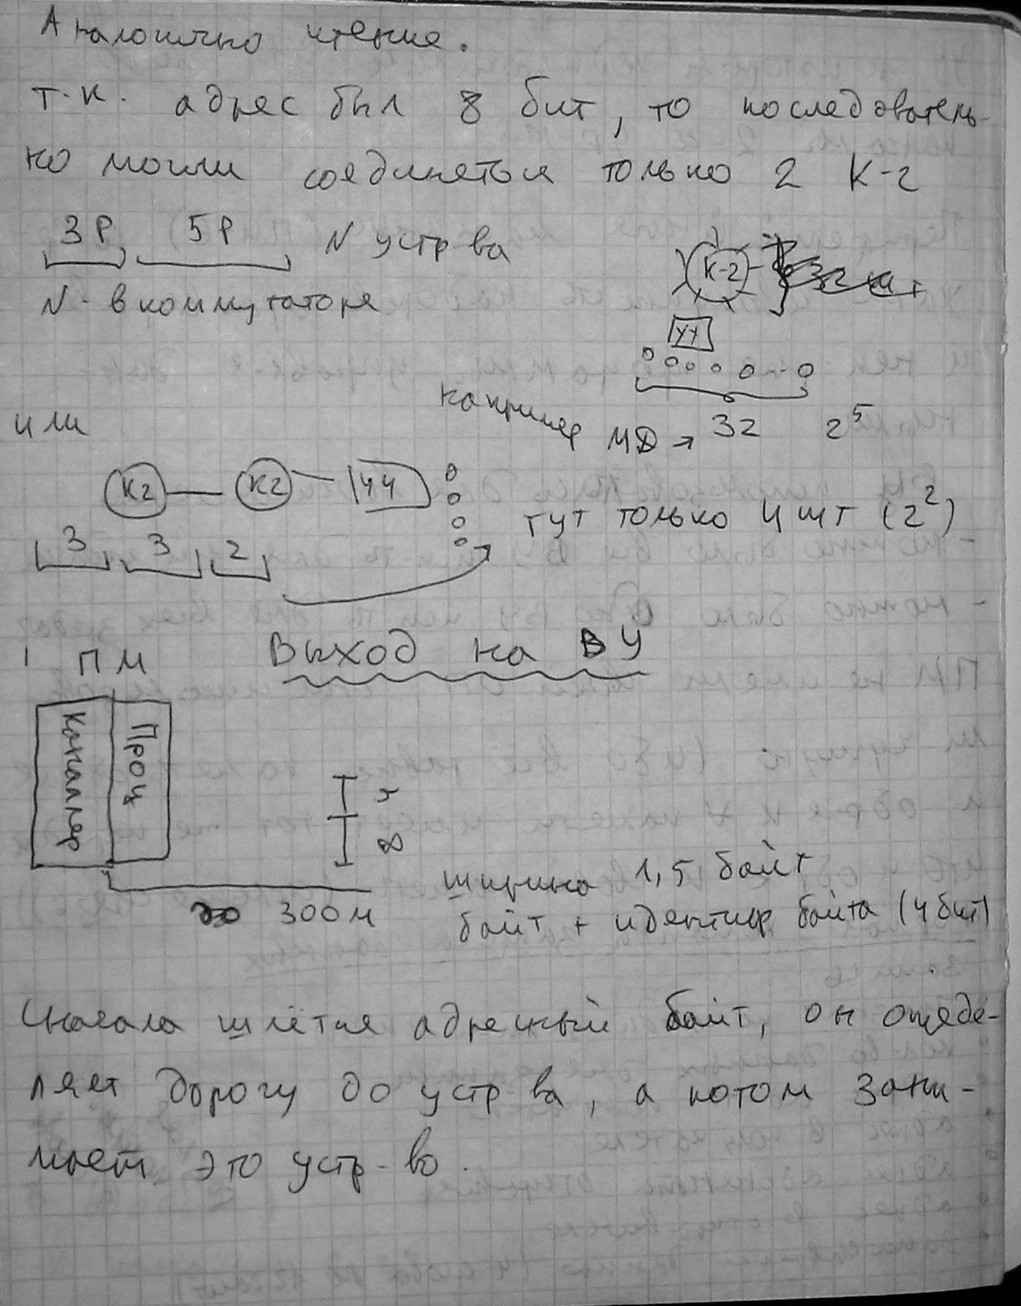 Аналогично чтение.
т.к. адрес был 8 бит, то последователь-
но могли соединяться только 2 К-2
3Р 5Р N устр ва
N - в коммутаторе
К-2
УУ
например МД → 32 2^5
или
К2 К2 УУ
тут только 4 шт (2^2)
3 3 2
ПМ Выход на ВУ
Каналлер Проц
4
8
300м
ширина 1,5 байт
байт + идентиф байта (4 бит)
Сначала шлётся адресный байт, он опреде-
ляет дорогу до устр ва, а потом зани-
мает это устр-во.